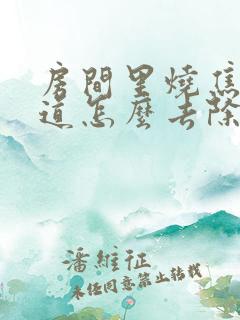 房間里燒焦
道怎麼去除
潘維征
未经同意禁止转载